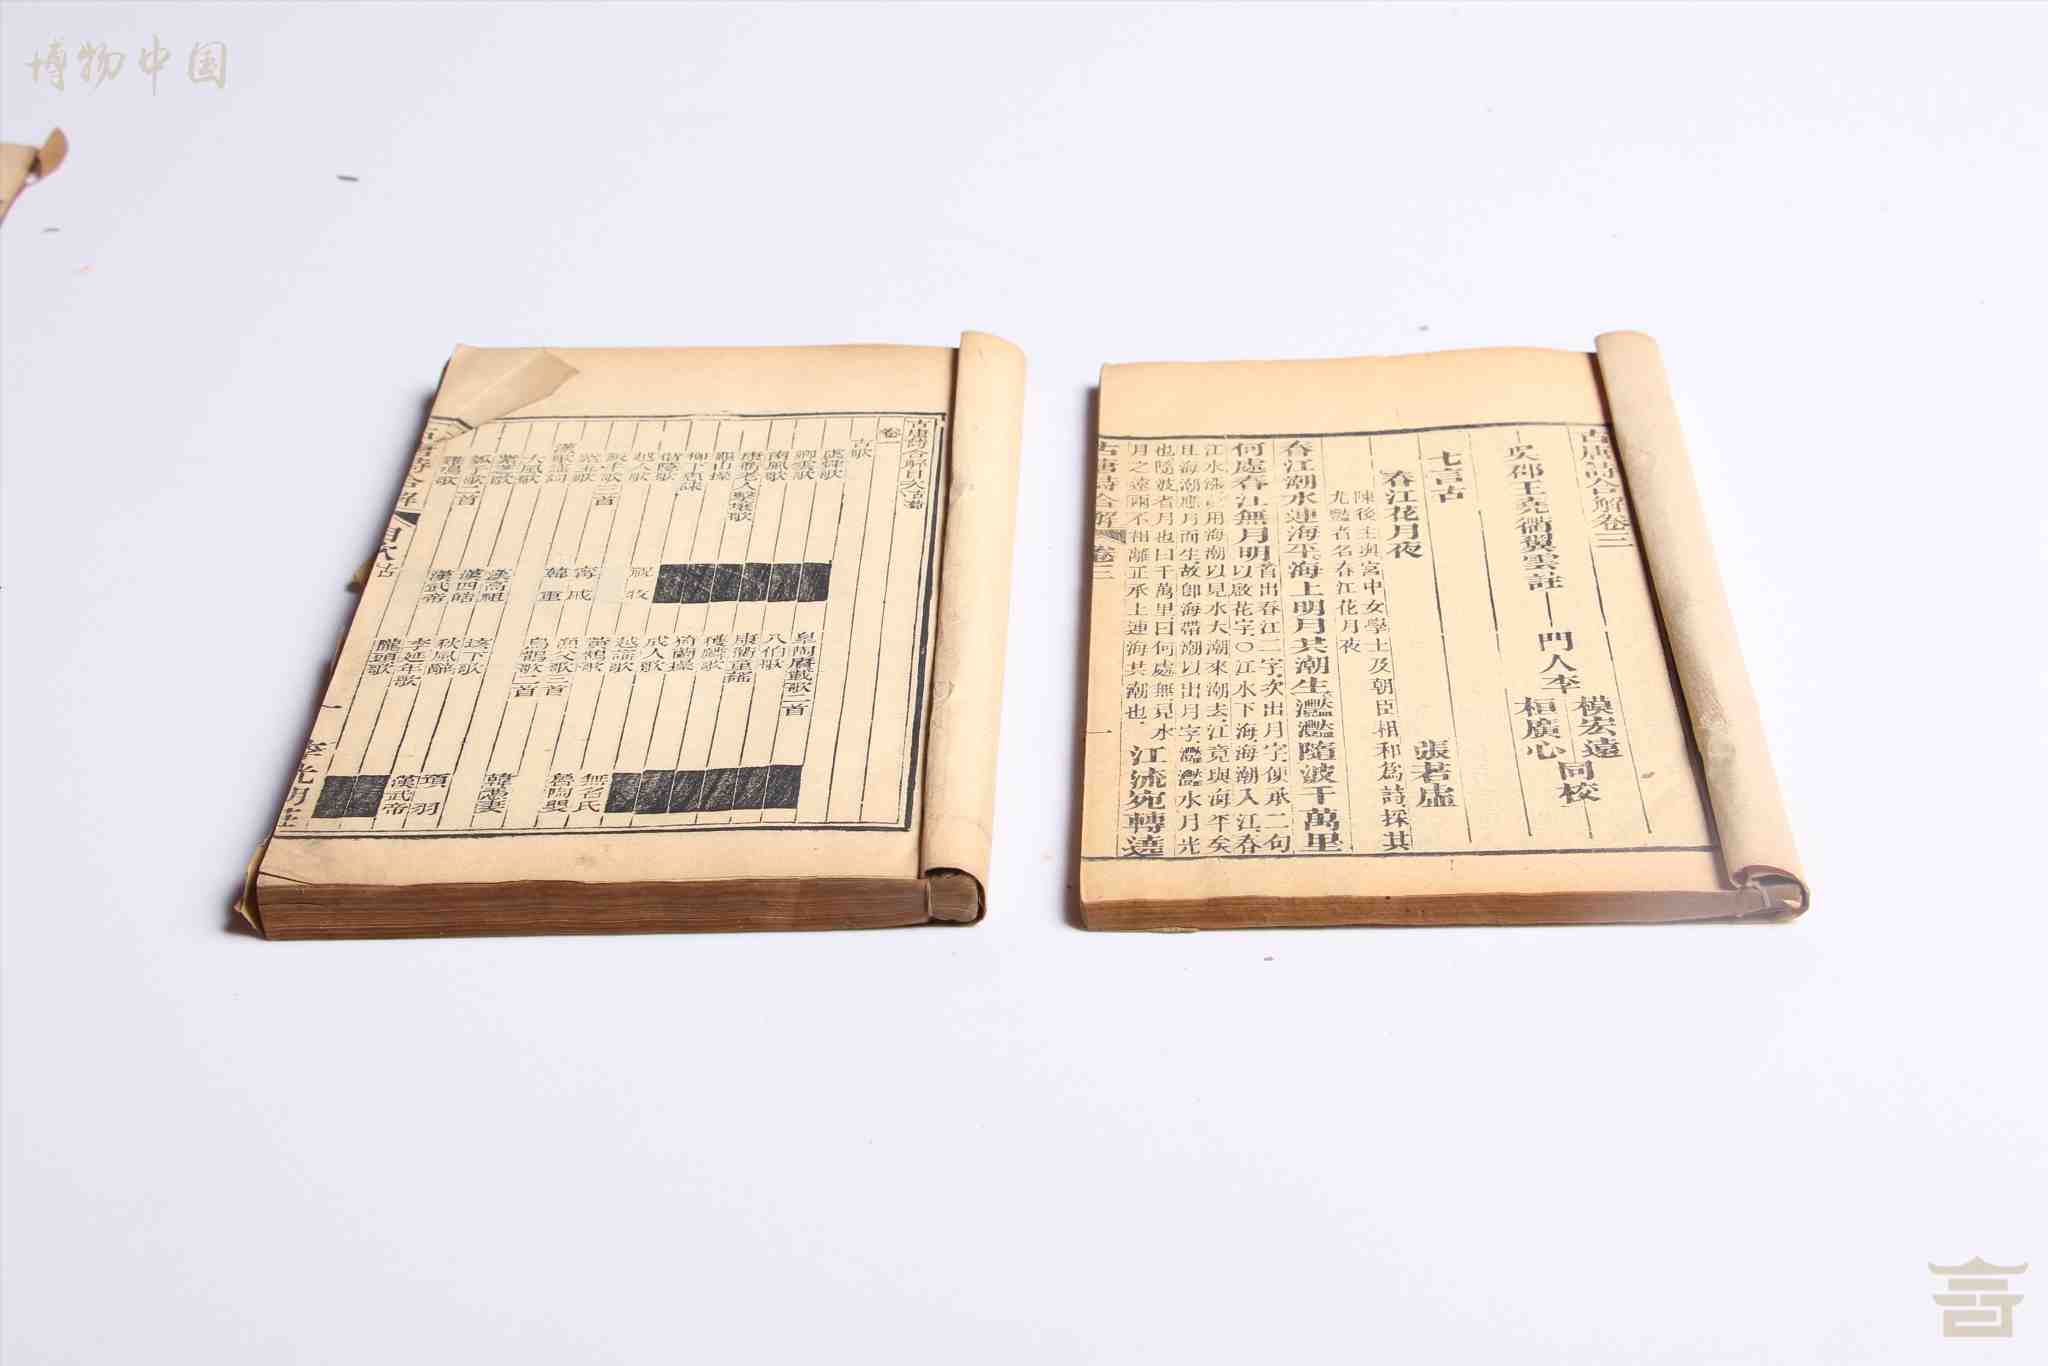 博物中国
古唐詩合解卷三
吳郡王堯衢翼雲註
門人李
模宏遠
桓廣心
同校
七言古
春江花月夜
張若虛
陳後主與宮中女學士及朝臣相和爲詩採其
尤艷者名春江花月夜
春江潮水連海平海上明月共潮生灩灩隨波千萬里
何處春江無月明
首出春江二字次出月字便承二句
以啟花字〇江水下海海潮入江春
江水漲用海潮以見水大潮來潮去江竟與海平矣
且海潮應月而生故卽海帶潮以出月字灩灩水月光
也隨波者月也曰千萬里曰何處無見水
月之遠而不相離正承上連海共潮也
江流宛轉遶
古唐詩合解
卷三
一
古唐詩合解目次古詩
卷一
古歌
虞舜歌
皐陶賡載歌二首
卿雲歌
八伯歌
南風歌
康衢童謠
康衢老人擊壤歌
獲麟歌
龜山操
猗蘭操
柳下惠誄
成人歌
越人歌
越謠歌
飯牛歌三首
黃鵠歌
魯陶嬰
紫玉歌
漁父歌三首
無名氏
甯戚
韓重
烏鵲歌二首
韓憑妻
大風歌
漢高祖
垓下歌
項羽
紫芝歌
漢四皓
秋風辭
漢武帝
瓠子歌二首
漢武帝
李延年歌
隴頭歌
古唐詩合解
目次古
一
李光明莊